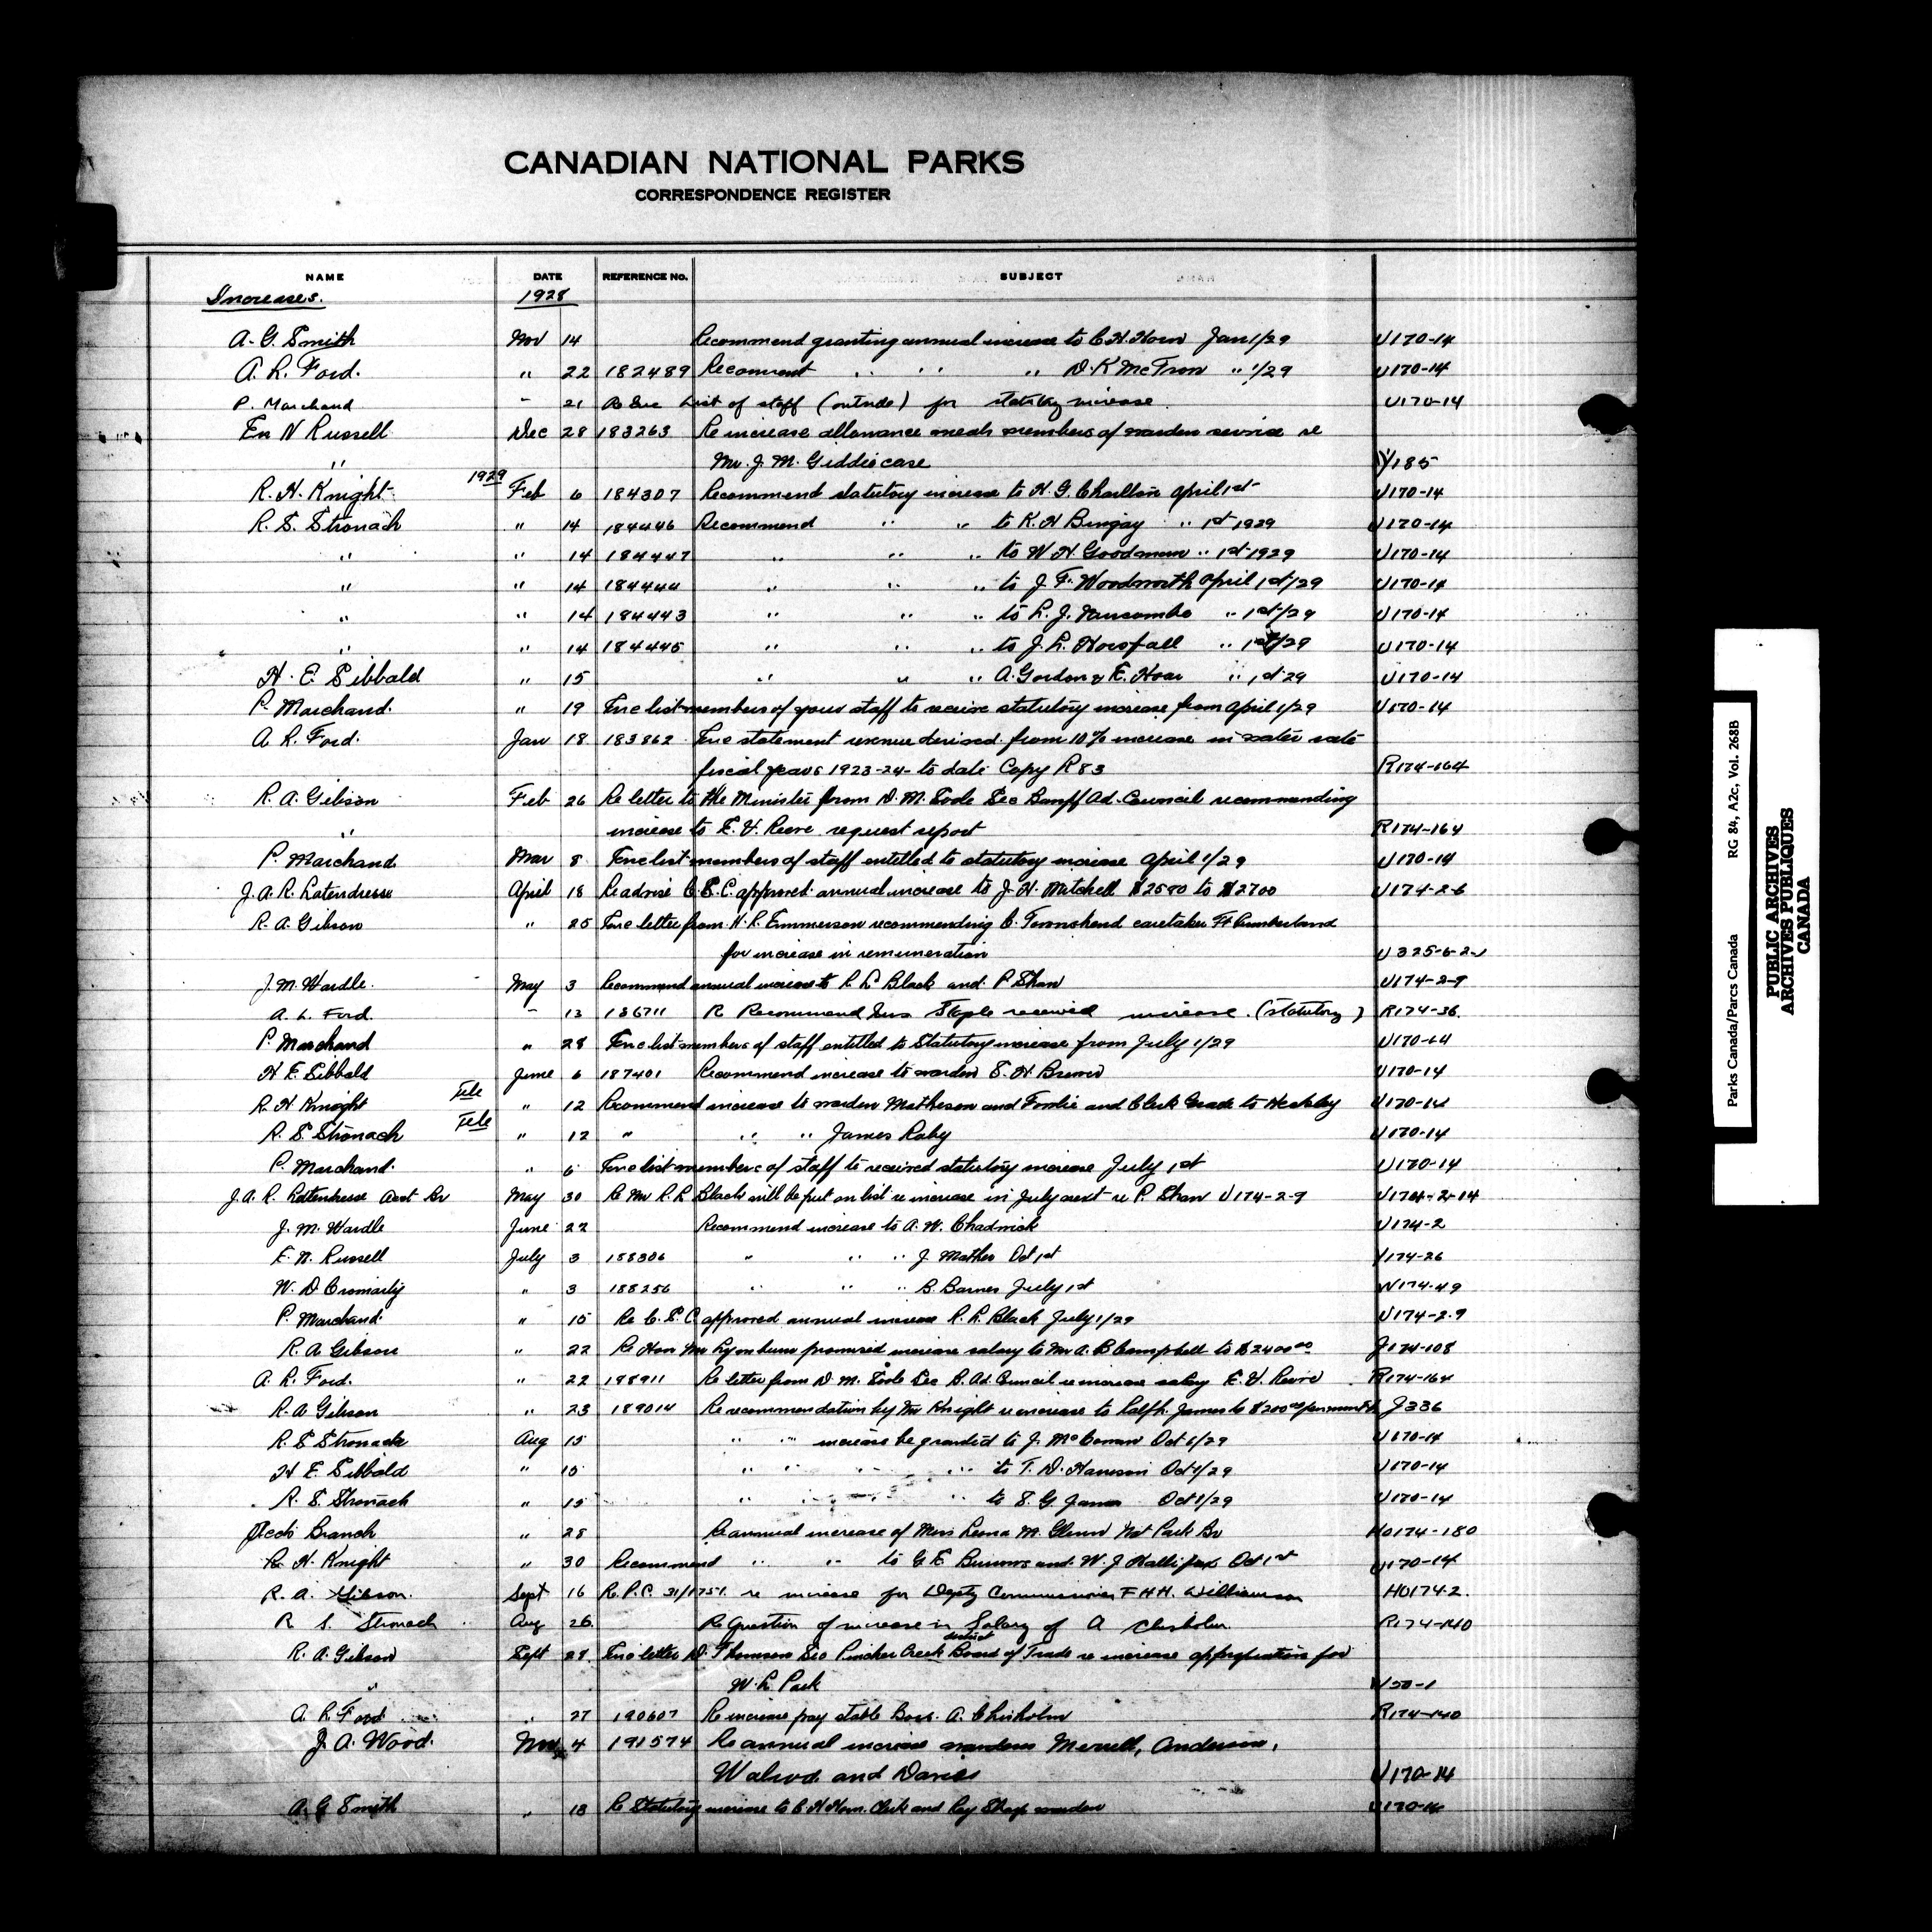 CANADIAN NATIONAL PARKS
CORRESPONDENCE REGISTER
NAME DATE REFERENCE No. SUBJECT
Increases. 1928
A. G. Smith Nov 14 Recommend granting annual increase to C. H. Horn Jan 1/29 U170-14
A. L. Ford. " 22 182489 Recomment " " " D. K " 1/29 U170-14
P. Marchand " 21 List of staff (outside) for statutory increase U170-14
En N Russell Dec 28 183263 Re increase allowance meals members of warden service re
" Mr. J. M. Giddie case Y185
1929
R. H. Knight Feb 6 184307 Recommend statutory increase to H. G. Charlton April 1st U170-14
R. S. Stronach " 14 184446 Recommend " " to K. H Bingay " 1st 1929 U170-14
" " 14 184447 " " " to W H. Goodman " 1st 1929 U170-14
" " 14 184444 " " " to J. F. Woodworth April 1st/29 U170-14
" " 14 184443 " " " to L. J. " 1st/29 U170-14
" " 14 184445 " " " to J. L. Horsfall " 1st/29 U170-14
H. E. Sibbald " 15 " " " A. Gordon & E. Hoar " 1st 29 U170-14
P. Marchand. " 19 Enc list members of your staff to receive statutory increase from April 1/29 U170-14
A L. Ford. Jan 18 183862 Enc statement revenue derived from 10% increase in water rate
fiscal years 1923-24 - to date Copy R83 R174-164
R. A. Gibson Feb 26 Re letter to the Minister from D. M. Soole Sec Banff Ad. Council recommending
" increase to E. V. Reeve request report R174-164
P. Marchand Mar 8 Enc list members of staff entitled to statutory increase April 1/29 U170-14
J. A. R. Latendresse April 18 Re advise C. S. C. approved annual increase to J. H. Mitchell $2580 to $2700 U174-2-6
R. A. Gibson " 25 Enc letter from H. R. Emmerson recommending C. Townshend caretaker Ft Cumberland
for increase in remuneration U325-6-2-1
J. M. Wardle. May 3 Recommend annual increase to R. L Black and P Shaw U174-2-9
A. L. Ford. " 13 186711 R Recommend Staple received increase. (statutory) R174-36.
P. Marchand " 28 Enc list members of staff entitled to Statutory increase from July 1/29 U170-14
H. E. Sibbald June 6 187401 Recommend increase to warden S. H Brewer U170-14
R. H Knight File " 12 Recommend increase to warden Matheson and and Clerk Grade to U170-14
R. S. Stronach File " 12 " " " James Raby U170-14
P. Marchand. " 6 Enc list members of staff to received statutory increase July 1st U170-14
J. A. R. Latendresse Acct Br May 30 Re Mr R. L Black will be put on list re increase in July next re P. Shaw U174-2-9 U174-2-14
J. M. Wardle June 22 Recommend increase to A. W. Chadwick U174-2
E. N. Russell July 3 188306 " " " J. Mather Oct 1st Y174-26
W. D Cromarty " 3 188256 " " " B. Barnes July 1st W174-49
P. Marchand " 15 Re C. S. C approved annual increase R. L. Black July 1/29 U174-2-9
R. A Gibson " 22 Re Hon Mr promised increase salary to Mr A. B Campbell to $2400 00 J174-108
A. L. Ford. " 22 188911 Re letter from D. M. Soole Sec B. Ad. Council re increase salary E. V. Reeve R174-164
R. A Gibson " 23 189014 Re recommendation by Mr Knight re increase to Ralph James to $200 00 per month J336
R. S Stronach Aug 15 " " increase be granted to J. McCowan Oct 1/29 U170-14
H E. Sibbald " 15 " " " " to T. D. Harrison Oct 1/29 U170-14
R. S. Stronach " 15 " " " " to S. G. James Oct 1/29 U170-14
Branch " 28 Re annual increase of Miss Leona M. Glenn Nat Park Br HO174-180
R. H. Knight " 30 Recommend " " to G. E. Burrows and W. J Hallifax Oct 1st U170-14
R. A. Gibson. Sept 16 Re. P.C. 31/1751. re increase for Depty Commissioner F H H. Williamson HO174-2.
R S. Stronach Aug 26. Re Question of increase in Salary of A Chisholm. R174-140
R. A. Gibson Sept 28 Enc letter D. Thomson Sec Pincher Creek district Board of Trade re increase appropriation for
" W. L. Park W50-1
A. L. Ford " 27 190607 Re increase pay stable Boss. A. Chisholm R174-140
J. A. Wood. Nov 4 191574 Re annual increase wardens Merrell, Anderson,
Walrod and Davies U170-14
A. G Smith " 18 Re Statutory increase to C H Horn. Clerk and Ray Sharp warden U170-14
Parks Canada/Parcs Canada RG 84, A2c, Vol. 268B
PUBLIC ARCHIVES
ARCHIVES PUBLIQUES
CANADA